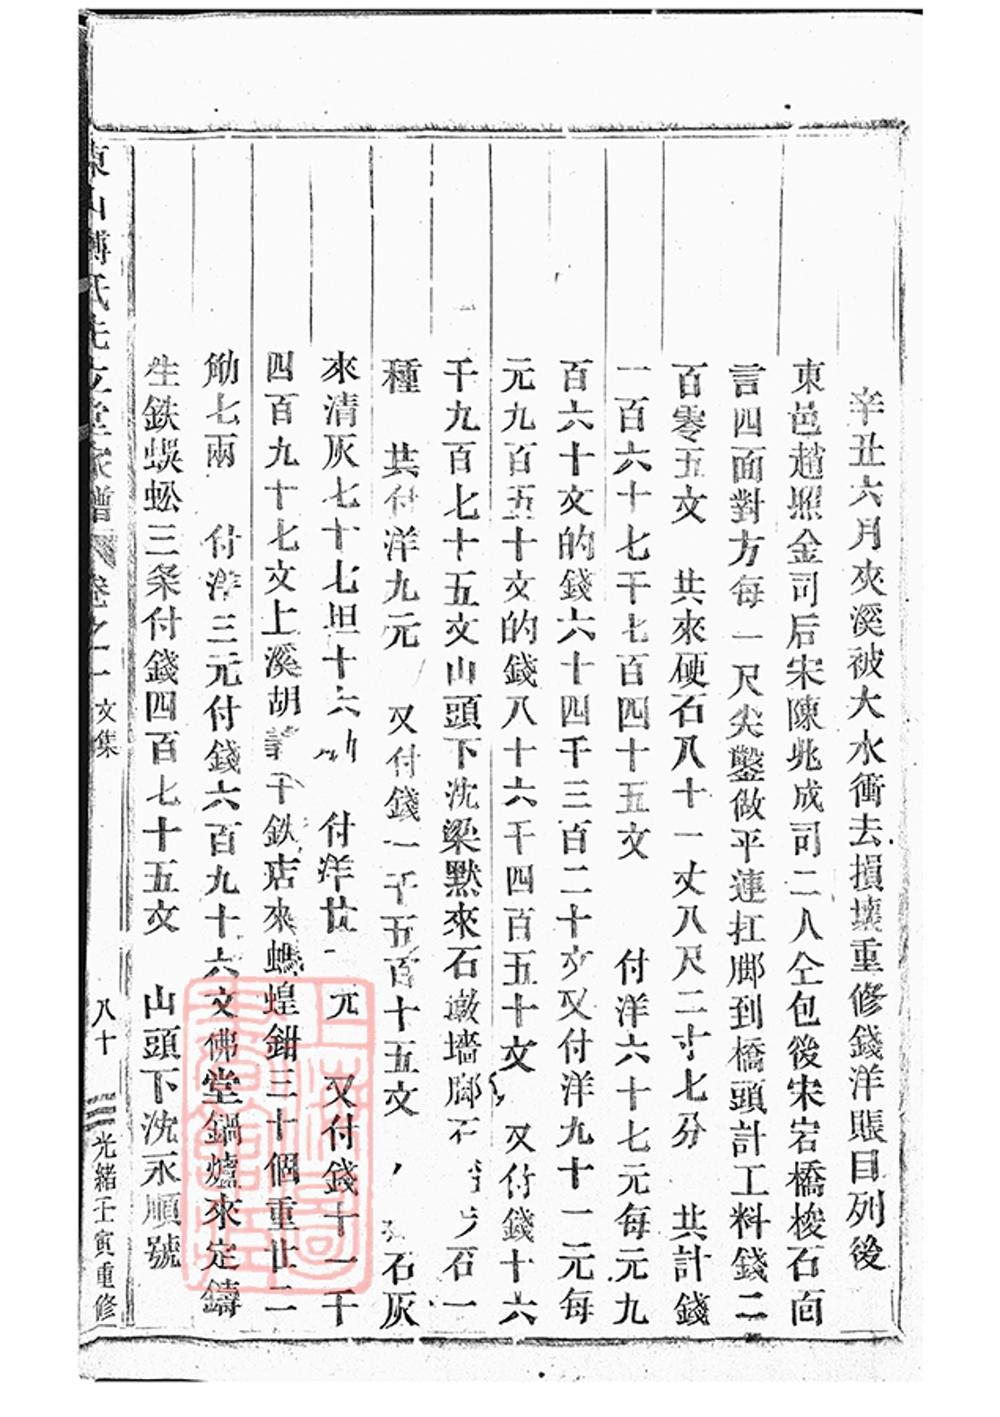 辛丑六月夾溪被大水衝去損壞重修錢洋賬目列後
東邑趙照金司后宋陳兆成司二人仝包後宋宕橋梭石面
言四面對方每一尺尖鑿做平連扛脚到橋頭計工料錢二
百零五文　共來硬石八十一丈八尺二寸七分　共計錢
一百六十七千七百四十五文　付洋六十七元每元九
百六十文的錢六十四千三百二十文又付洋九十一元每
元九百五十文的錢八十六千四百五十文　又付錢十六
千九百七十五文山頭下沈梁默來石墩墻石一
種　共付洋九元　又付錢一千五百十五文　石灰
來清灰七十七坦十六　付洋廿元　又付錢十一千
四百九十七文上溪胡千鉄店來蜈蝗鉗三十個重廿二
觔七兩　付洋三元付錢六百九十六文佛堂鍋爐來定鑄
生鉄蜈蚣三条付錢四百七十五文　山頭下沈永順號
東山傅氏先文堂家譜　卷之一　文集　八十　光緒壬寅重修
上海圖書館藏